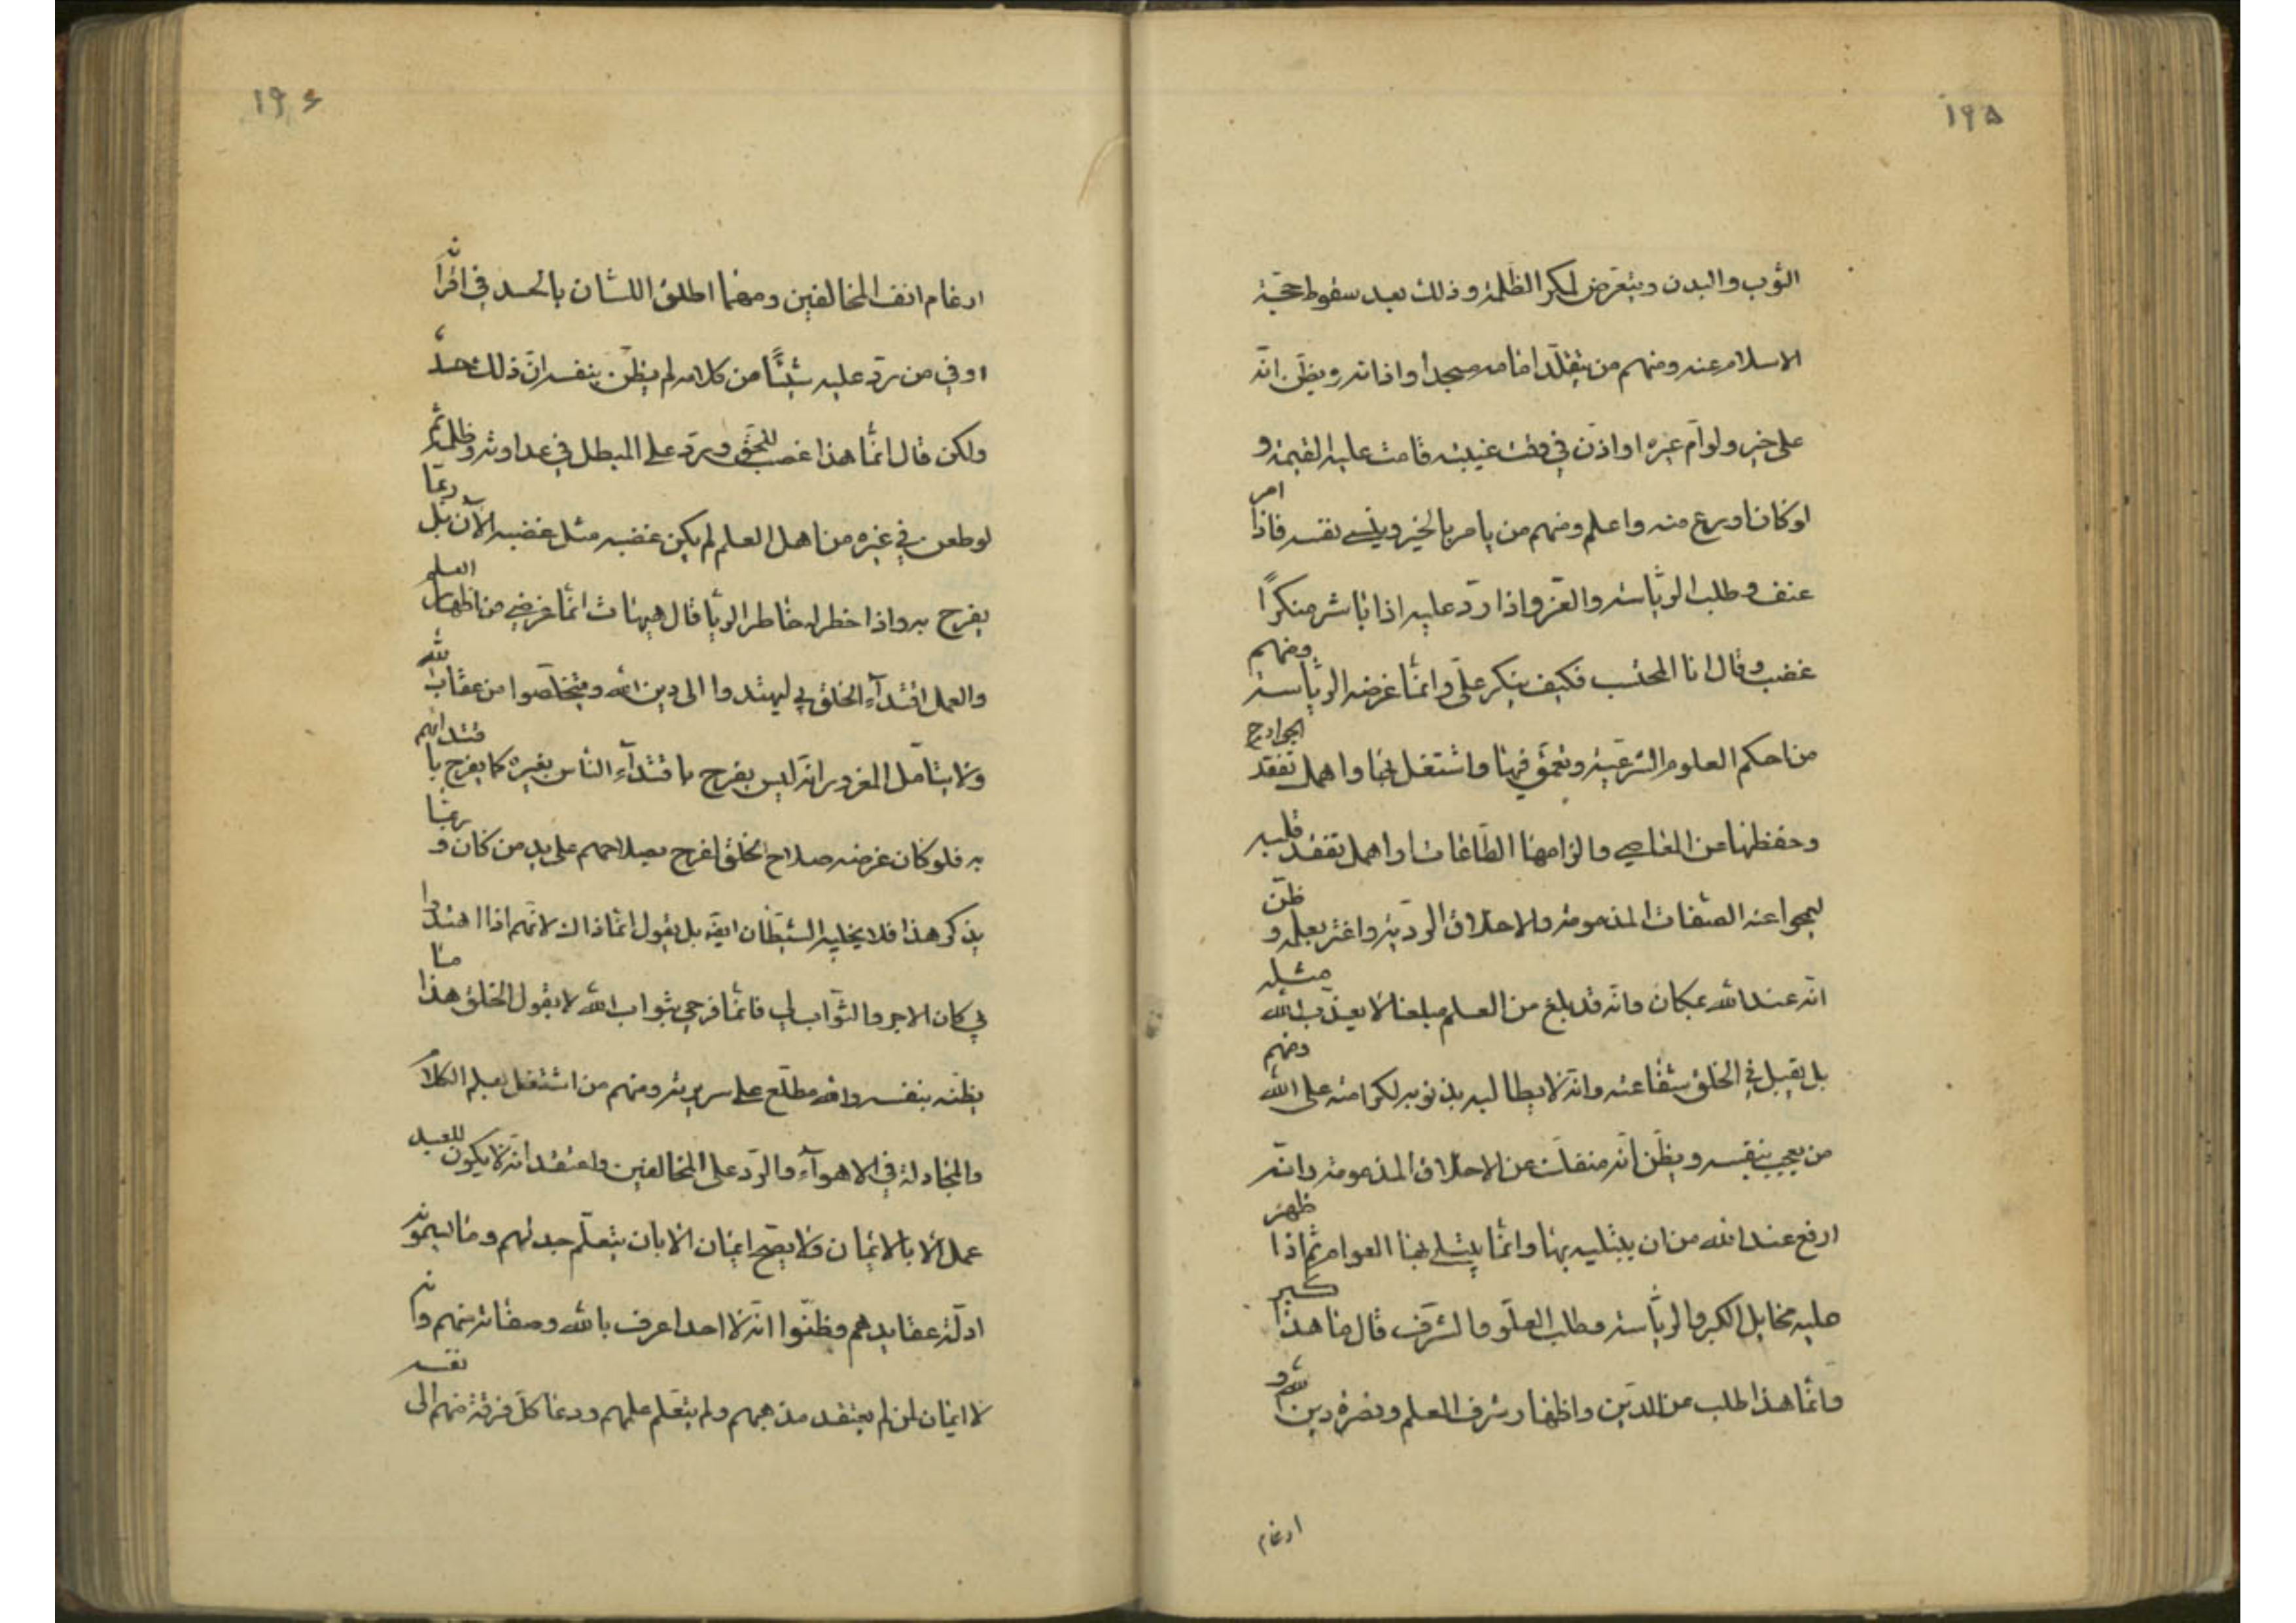 ١٩٥
الثوب والبدن ويتعرض لمكر الظلمة وذلك بعد سقوط حجة
الاسلام عنه ومنهم من يتقلد امامة مسجد او اذانه ويظن انه
على خير ولو ام غيره او اذن في وقت غيبته قامت عليه القيمة و
لو كان اورع منه واعلم ومنهم من يامر بالخير وينسى نفسه فاذا امر
عنف وطلب الرياسة والعز واذا رد عليه اذا باشر منكرًا
غضب وقال انا المحتسب فكيف ينكر علي وانما غرضه الرياسة ومنهم
من احكم العلوم الشرعية وتعمق فيها واشتغل بها واهمل تفقد الجوارح
وحفظها عن المعاصي والزامها الطاعات واهمل تفقد قلبه
ليمحو عنه الصفات المذمومة والاخلاق الردية واغتر بعلمه و ظن
انه عند الله بمكان وانه قد بلغ من العلم مبلغا لا يعذب الله مثله
بل يقبل في الخلق شفاعته وانه لا يطالبه بذنوبه لكرامته على الله ومنهم
من يعجب بنفسه ويظن انه منفك عن الاخلاق المذمومة وانه
ارفع عند الله من ان يبتليه بها وانما يبتلي بها العوام ثم اذا ظهر
عليه مخايل الكبر والرياسة وطلب العلو والشرف قال ما هذا كبر
وانما هذا طلب عز الدين واظهار شرف العلم ونصرة دين الله و
ارغام
١٩٦
ارغام انف المخالفين ومهما اطلق اللسان بالحسد في اقرانه
او في من رد عليه شيئًا من كلامه لم يظن بنفسه ان ذلك حسد
ولكن قال انما هذا غضب للحق ورد على المبطل في عداوته وظلمه ثم
لو طعن في غيره من اهل العلم لم يكن غضبه مثل غضبه الآن بل ربما
يفرح به واذا خطر له خاطر الريا قال هيهات انما غرضي من اظهار العلم
والعمل اقتدآء الخلق بي ليهتدوا الى دين الله ويتخلصوا من عقاب الله
ولا يتامل المغرور انه ليس يفرح باقتدآء الناس بغيره كما يفرح باقتدائهم
به فلو كان غرضه صلاح الخلق لفرح بصلاحهم على يد من كان و ربما
يذكر هذا فلا يخليه الشيطان ايضه بل يقول انما ذاك لانهم اذا اهتدوا
بي كان الاجر والثواب لي فانما فرحي بثواب الله لا بقول الخلق هذا ما
يظنه بنفسه والله مطلع على سريرته ومنهم من اشتغل بعلم الكلام
والمجادلة في الاهوآء والرد على المخالفين واعتقد انه لا يكون للعبد
عمل الا بالايمان ولا يصح ايمان الا بان يتعلم جدلهم وما يسمونه
ادلة عقايدهم وظنوا انه لا احد اعرف بالله وصفاته منهم وانه
لا ايمان لمن لم يعتقد مذهبهم ولم يتعلم علمهم ودعا كل فرقة منهم الى نفسه